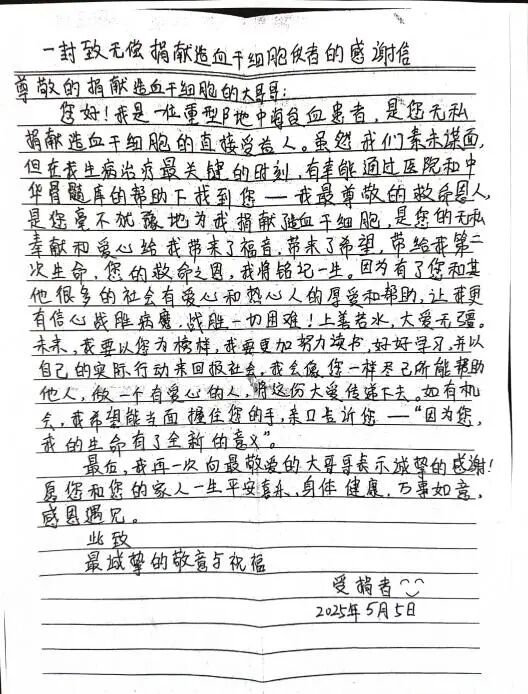 一封致无偿捐献造血干细胞使者的感谢信
尊敬的捐献造血干细胞的大哥哥：
您好！我是一位重型β地中海贫血患者，是您无私
捐献造血干细胞的直接受益人。虽然我们素未谋面，
但在我生病治疗最关键的时刻，有幸能通过医院和中
华骨髓库的帮助下找到您——我最尊敬的救命恩人，
是您毫不犹豫地为我捐献造血干细胞，是您的无私
奉献和爱心给我带来了福音，带来了希望，带给我第二
次生命，您的救命之恩，我将铭记一生。因为有了您和其
他很多的社会有爱心和热心人的厚爱和帮助，让我更
有信心战胜病魔，战胜一切困难！上善若水，大爱无疆。
未来，我要以您为榜样，我要更加努力读书，好好学习，并以
自己的实际行动来回报社会，我会像您一样尽己所能帮助
他人，做一个有爱心的人，将这份大爱传递下去。如有机
会，我希望能当面握住您的手，亲口告诉您——“因为您，
我的生命有了全新的意义”。
最后，我再一次向最敬爱的大哥哥表示诚挚的感谢！
愿您和您的家人一生平安喜乐、身体健康、万事如意，
感恩遇见。
此致
最诚挚的敬意与祝福
受捐者
2025年5月5日